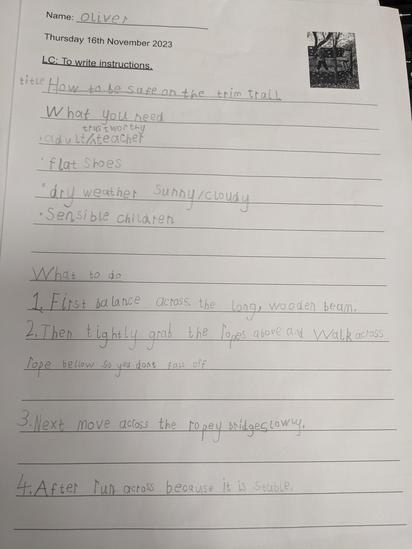 Name: Oliver
Thursday 16th November 2023
LC: To write instructions.
title How to be safe on the trim trail
What you need
trustworthy
• adult/teacher
• flat shoes
• dry weather sunny/cloudy
• Sensible children
What to do
1. First balance across the long, wooden beam.
2. Then tightly grab the ropes above and walk across
rope bellow so you dont fall off
3. Next move across the ropey bridge slowly.
4. After run across because it is stable.